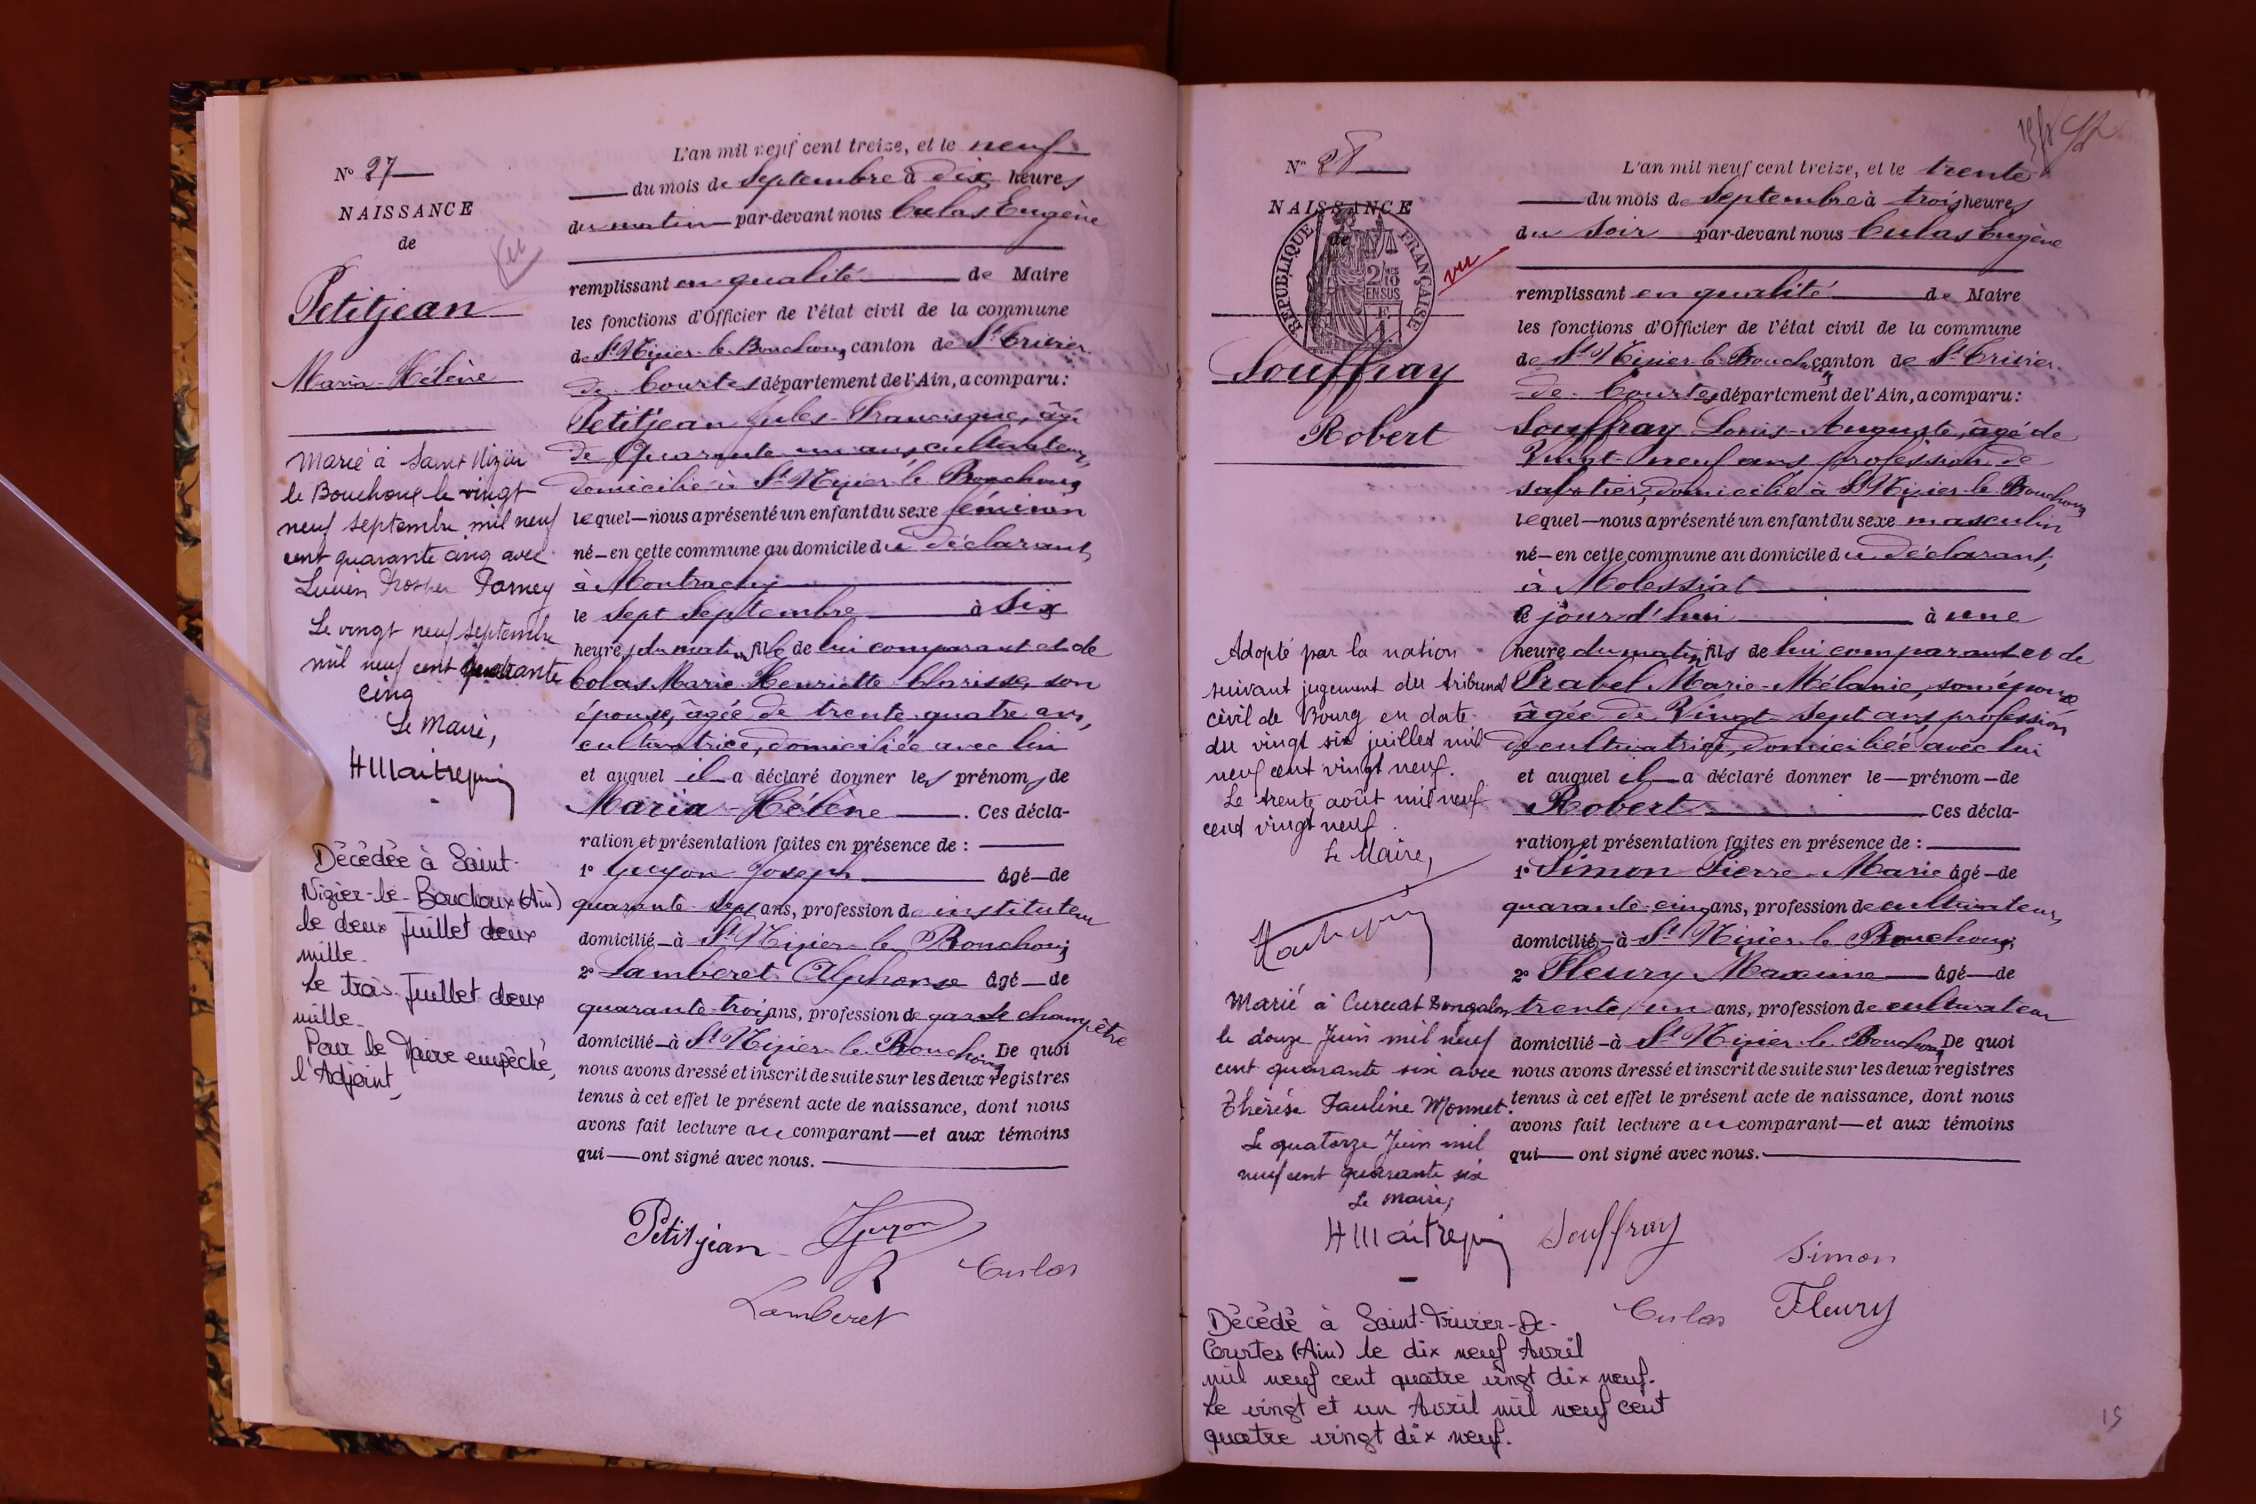 N° 27
NAISSANCE
de
vu
Petitjean
Maria-Hélène
Marié à Saint Nizier
le Bouchoux le vingt
neuf septembre mil neuf
cent quarante cinq avec
Lucien Prosper
Le vingt neuf septembre
mil neuf cent quarante
cinq
Le Maire,
HMaitrepin
Décédée à Saint-
Nizier-le-Bouchoux (Ain)
le deux Juillet deux
mille.
Le trois Juillet deux
mille.
Pour le Maire empêché,
l'Adjoint,
L'an mil neuf cent treize, et le neuf
du mois de Septembre à dix heures
du matin par-devant nous Culas Eugène
remplissant en qualité de Maire
les fonctions d'Officier de l'état civil de la commune
de St Nizier-le-Bouchoux canton de St Trivier
de Courtes département de l'Ain, a comparu:
Petitjean Jules-Francisque, âgé
de Quarante un ans, cultivateur,
domicilié à St Nizier-le-Bouchoux
lequel—nous a présenté un enfant du sexe féminin
né—en cette commune au domicile du déclarant,
à Montrachy
le sept Septembre à Six
heures du matin, fille de lui comparant et de
Colas Marie-Henriette-Clarisse, son
épouse, âgée de trente-quatre ans,
cultivatrice, domiciliée avec lui
et auquel il a déclaré donner les prénoms de
Maria-Hélène. Ces décla-
ration et présentation faites en présence de :
1° Guyon Joseph âgé—de
quarante-sept ans, profession de instituteur
domicilié—à St Nizier-le-Bouchoux
2° Lamberet Alphonse âgé—de
quarante-trois ans, profession de garde champêtre
domicilié—à St Nizier-le-Bouchoux De quoi
nous avons dressé et inscrit de suite sur les deux registres
tenus à cet effet le présent acte de naissance, dont nous
avons fait lecture au comparant—et aux témoins
qui—ont signé avec nous.
Petitjean Guyon
Culas
Lamberet
N° 28
NAISSANCE
de
REPUBLIQUE FRANÇAISE
2/10
EN SUS
vu
Souffray
Robert
Adopté par la nation
suivant jugement du tribunal
civil de Bourg en date
du vingt six juillet mil
neuf cent vingt neuf.
Le trente août mil neuf
cent vingt neuf
Le Maire,
Marié à Curciat Dongalon
le douze Juin mil neuf
cent quarante six avec
Thérèse Pauline Monnet.
Le quatorze Juin mil
neuf cent quarante six
Le Maire,
HMaitrepin
Décédé à Saint-Trivier-De-
Courtes (Ain) le dix neuf Avril
mil neuf cent quatre vingt dix neuf.
Le vingt et un Avril mil neuf cent
quatre vingt dix neuf.
L'an mil neuf cent treize, et le trente
du mois de Septembre à trois heures
du soir par-devant nous Culas Eugène
remplissant en qualité de Maire
les fonctions d'Officier de l'état civil de la commune
de St Nizier-le-Bouchoux canton de St Trivier
de Courtes département de l'Ain, a comparu:
Souffray Louis-Auguste, âgé de
Vingt-neuf ans, profession de
sabotier, domicilié à St Nizier-le-Bouchoux
lequel—nous a présenté un enfant du sexe masculin
né—en cette commune au domicile du déclarant,
à Molessiat
le jourd'hui à une
heure du matin fils de lui comparant et de
Prabel Marie-Mélanie, son épouse
âgée de Vingt sept ans, profession
de cultivatrice, domiciliée avec lui
et auquel il a déclaré donner le—prénom—de
Robert Ces décla-
ration et présentation faites en présence de :
1° Simon Pierre-Marie âgé—de
quarante-cinq ans, profession de cultivateur,
domicilié—à St Nizier-le-Bouchoux,
2° Fleury Maxime âgé—de
trente un ans, profession de cultivateur
domicilié—à St Nizier-le-Bouchoux De quoi
nous avons dressé et inscrit de suite sur les deux registres
tenus à cet effet le présent acte de naissance, dont nous
avons fait lecture au comparant—et aux témoins
qui—ont signé avec nous.
Souffray
Simon
Culas Fleury
15